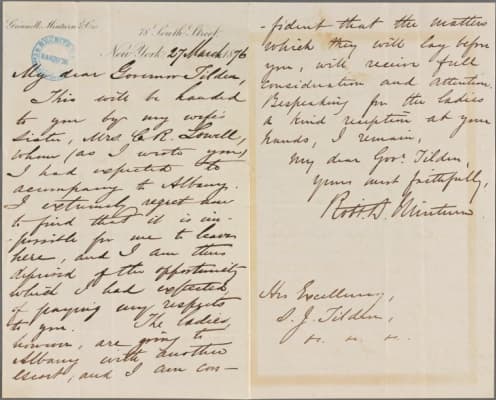 Grinnell, Minturn & Co.
78 South Street
New York, 27 March 1876
My dear Governor Tilden,
This will be handed
to you by my wife's
sister, Mrs. C. R. Lowell,
whom (as I wrote you)
I had expected to
accompany to Albany.
I extremely regret now
to find that it is im-
-possible for me to leave
here, and I am thus
deprived of the opportunity
which I had expected,
of paying my respects
to you. The ladies
however, are going to
Albany with another
escort, and I am con-
-fident that the matters
which they will lay before
you, will receive full
consideration and attention.
Bespeaking for the ladies
a kind reception at your
hands, I remain,
My dear Govr. Tilden,
yours most faithfully,
Robt. B. Minturn
His Excellency,
S. J. Tilden,